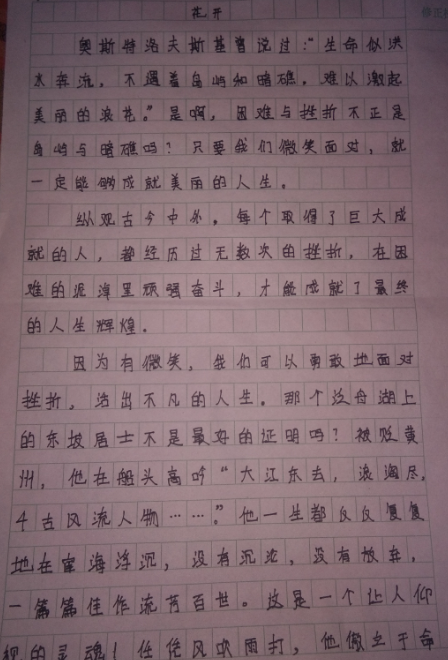 花开
奥斯特洛夫斯基曾说过:“生命似洪
水奔流,不遇着岛屿和暗礁,难以激起
美丽的浪花。”是啊,困难与挫折不正是
岛屿与暗礁吗?只要我们微笑面对,就
一定能够成就美丽的人生。
纵观古今中外,每个取得了巨大成
就的人,都经历过无数次的挫折,在困
难的泥潭里顽强奋斗,才能成就了最终
的人生辉煌。
因为有微笑,我们可以勇敢地面对
挫折,活出不凡的人生。那个泛舟湖上
的东坡居士不是最好的证明吗?被贬黄
州,他在船头高吟“大江东去,浪淘尽,
千古风流人物……”他一生都反反复复
地在宦海浮沉,没有沉沦,没有放弃,
一篇篇佳作流芳百世。这是一个让人仰
视的灵魂!任凭风吹雨打,他傲立于命